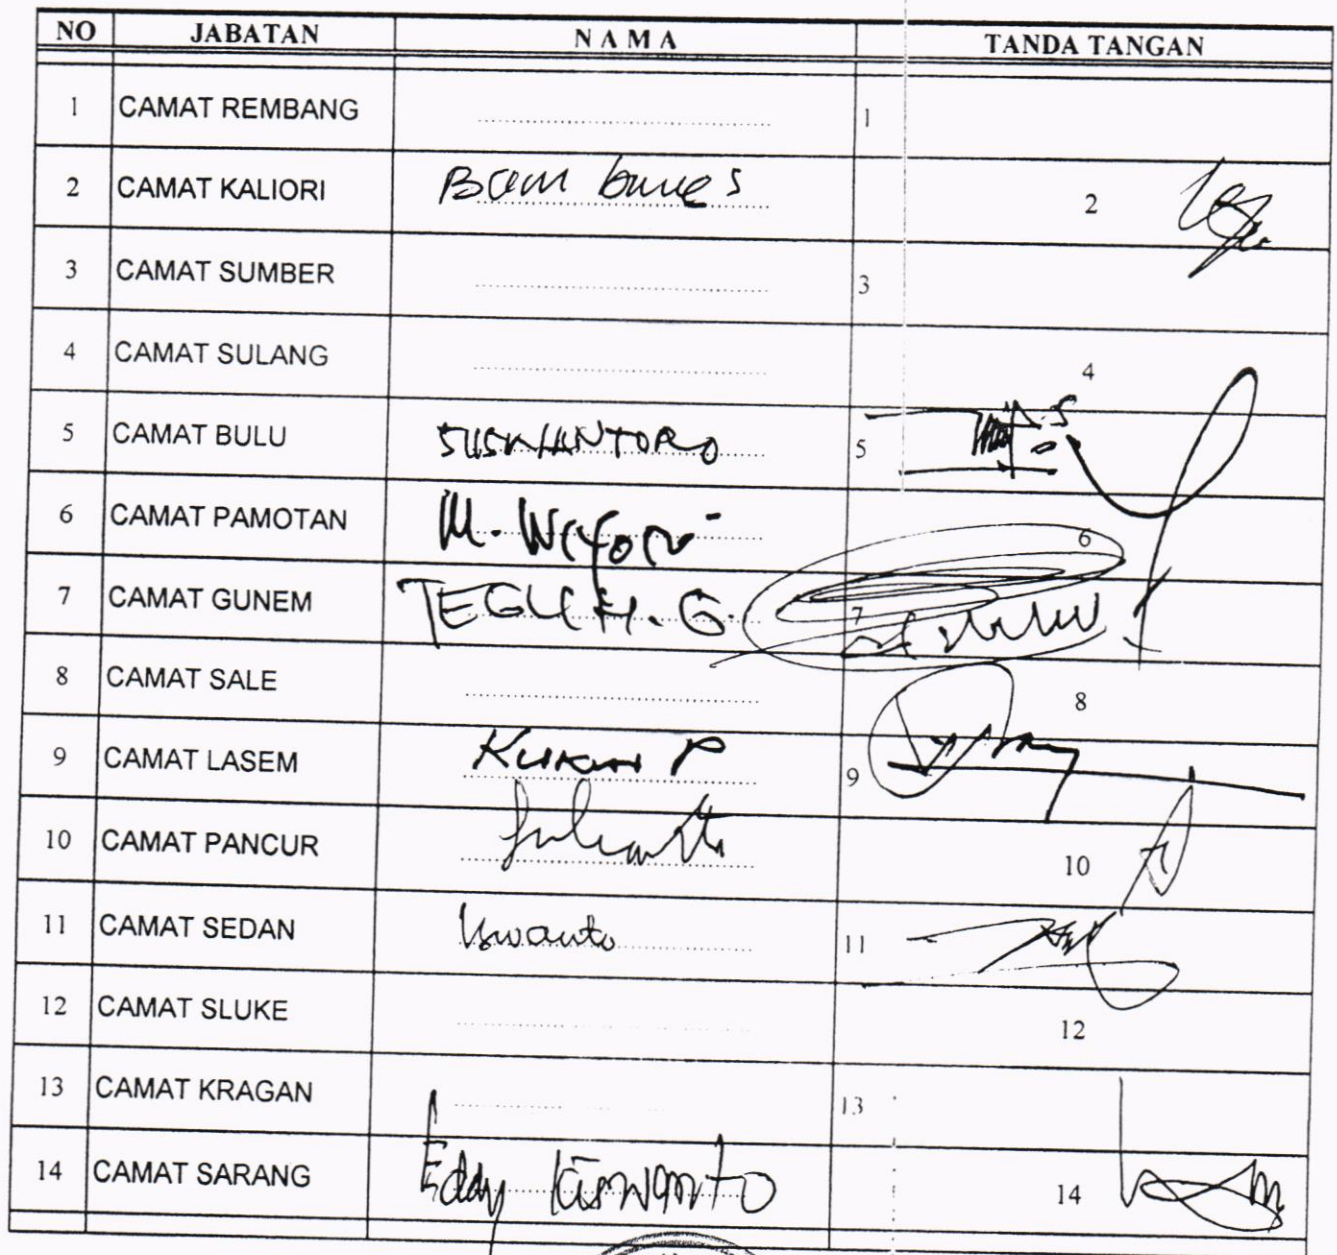 NO JABATAN NAMA TANDA TANGAN
1 CAMAT REMBANG 1
2 CAMAT KALIORI Bambang S 2
3 CAMAT SUMBER 3
4 CAMAT SULANG 4
5 CAMAT BULU SUSWANTORO 5
6 CAMAT PAMOTAN M. 6
7 CAMAT GUNEM TEGUH. G. 7
8 CAMAT SALE 8
9 CAMAT LASEM P 9
10 CAMAT PANCUR 10
11 CAMAT SEDAN 11
12 CAMAT SLUKE 12
13 CAMAT KRAGAN 13
14 CAMAT SARANG Eddy Kiswanto 14